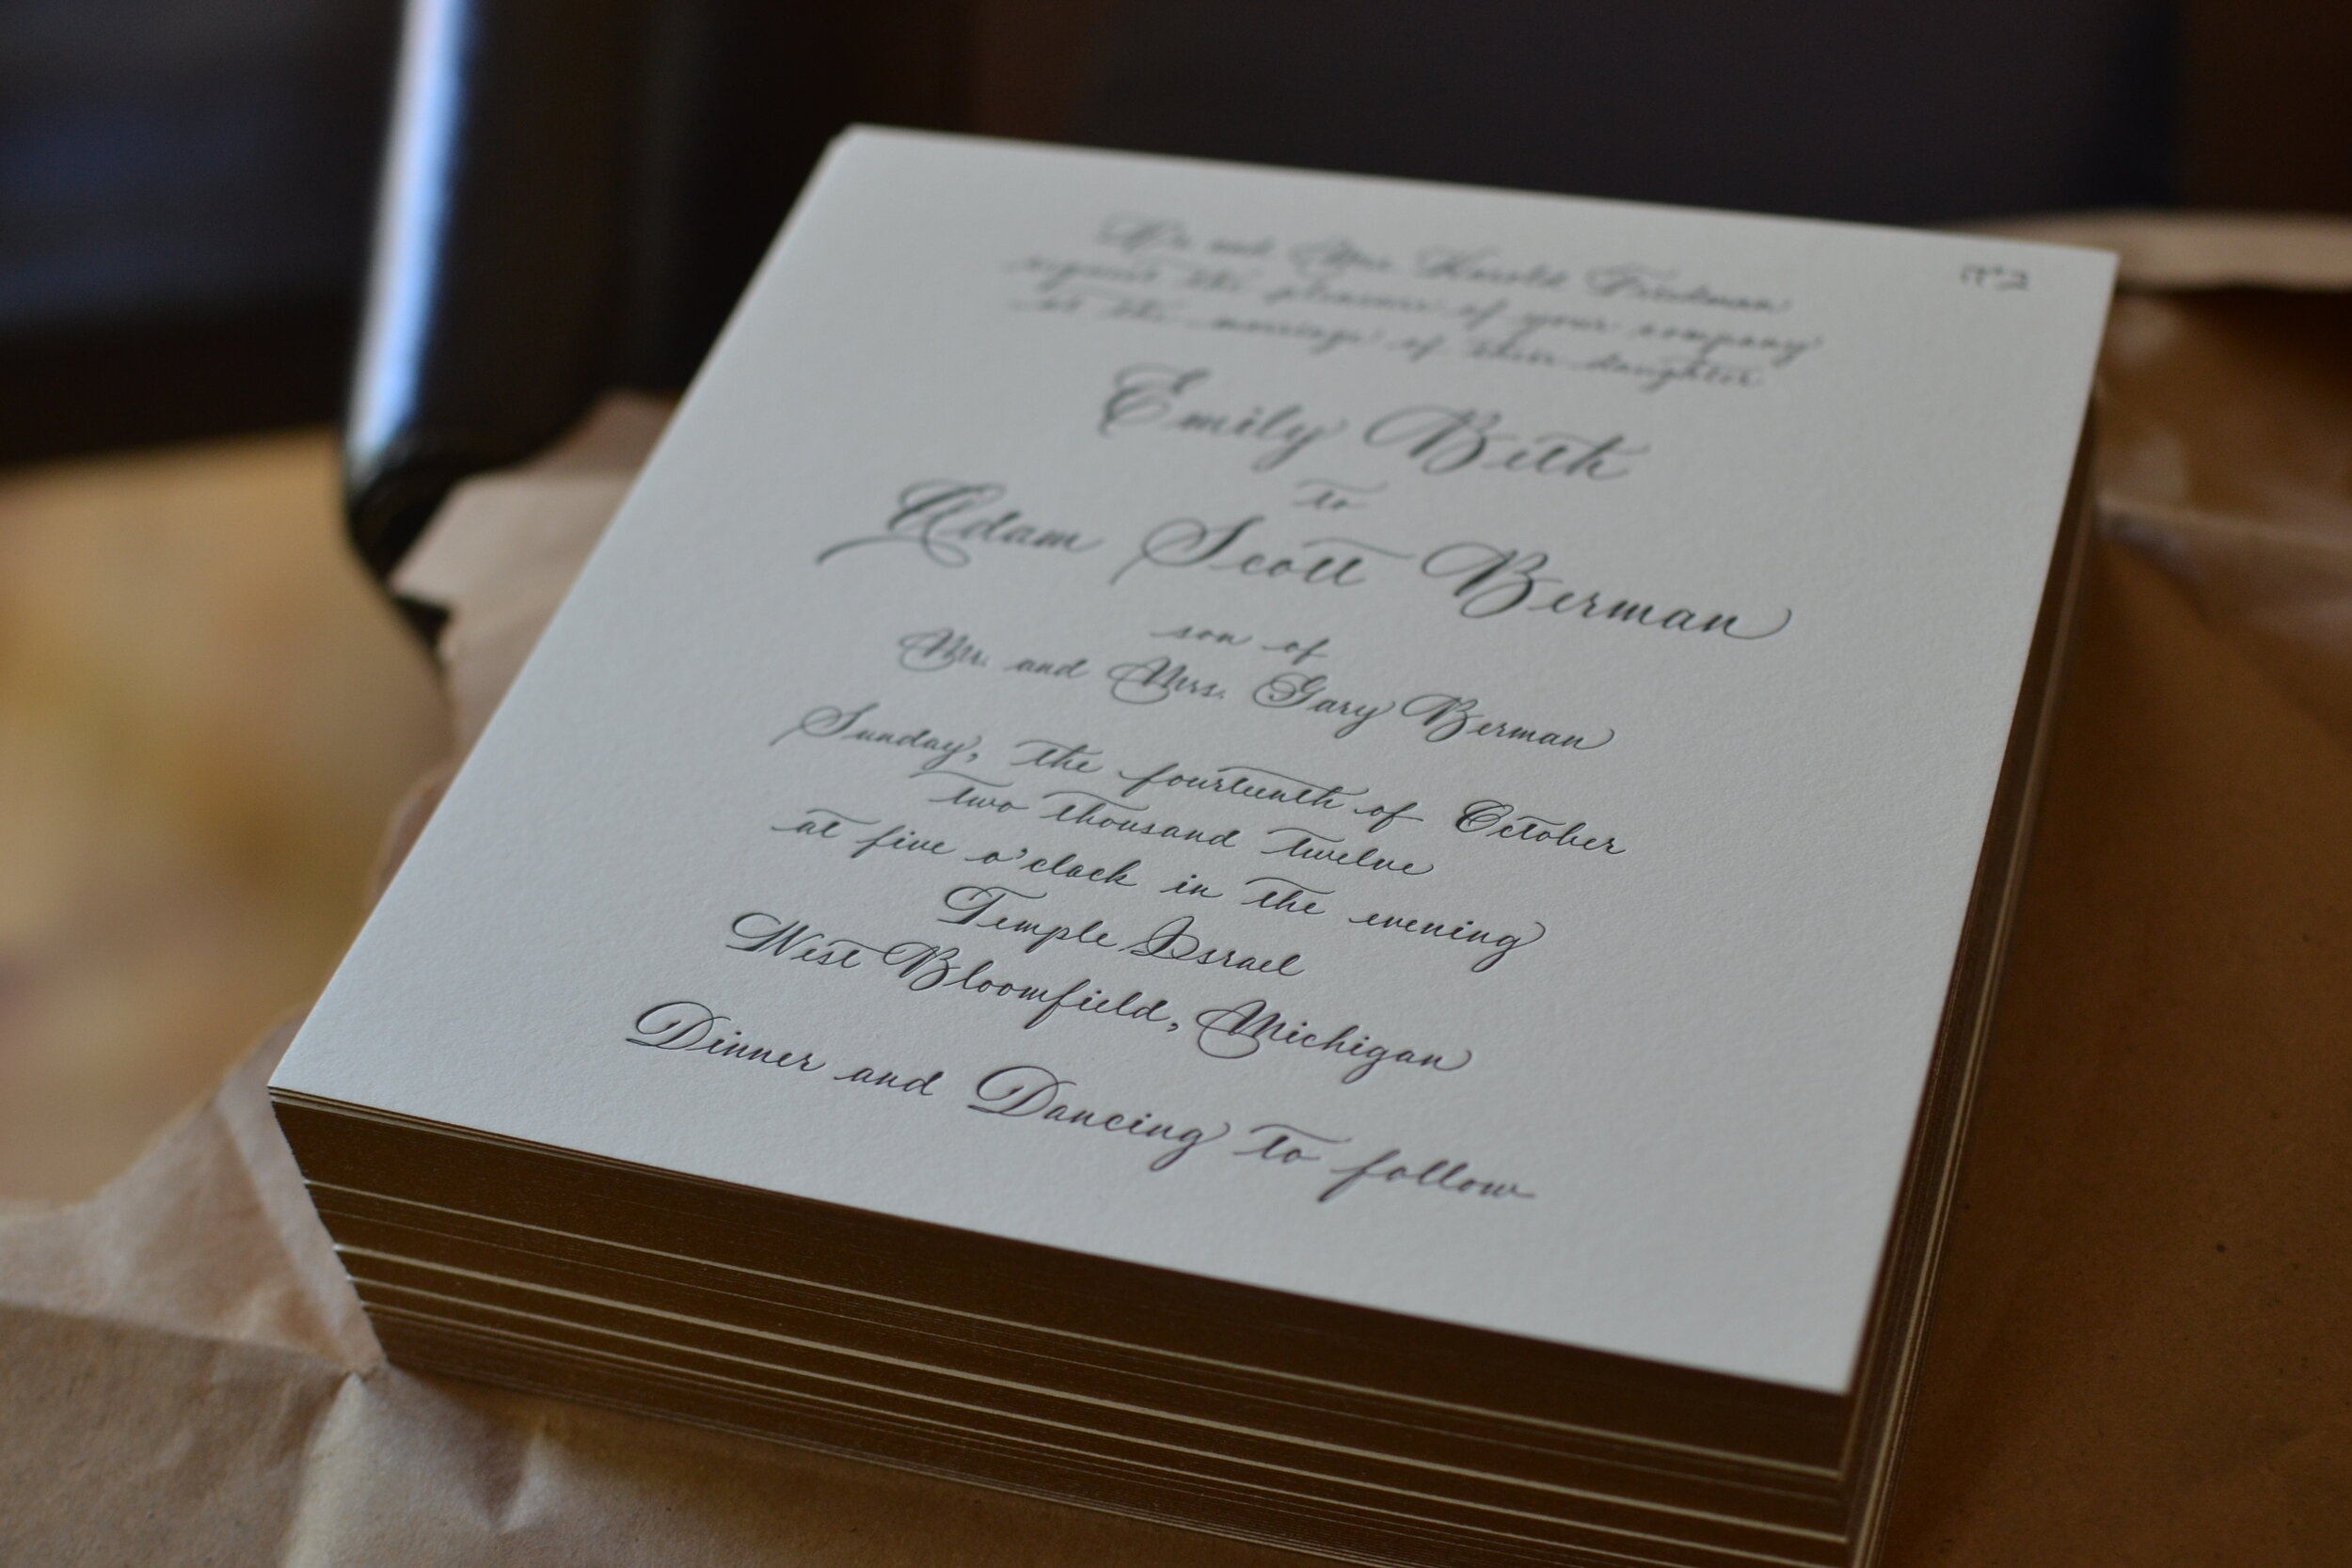 בס״ד
Mr. and Mrs. Harold Friedman
request the pleasure of your company
at the marriage of their daughter
Emily Beth
to
Adam Scott Berman
son of
Mr. and Mrs. Gary Berman
Sunday, the fourteenth of October
two thousand twelve
at five o'clock in the evening
Temple Israel
West Bloomfield, Michigan
Dinner and Dancing to follow